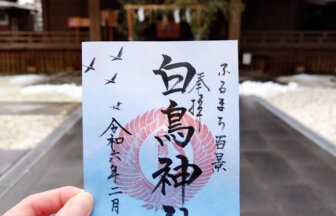 ふるまち百景
奉拝
白鳥神社
令和六年二月